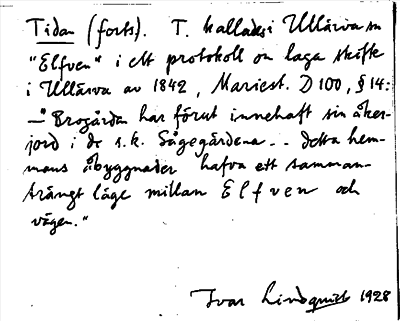 Tidan (forts). T. kallades i Ullärva sn
"Elfven" i ett protokoll om laga skifte
i Ullärva av 1842, Mariest. D 100, § 14:
—"Brogården har förut innehaft sin åker-
jord i de s.k. Sågegärdena - - detta hem-
mans åbyggnader hafva ett samman-
trängt läge mellan Elfven och
vägen."
Ivar Lindquist 1928